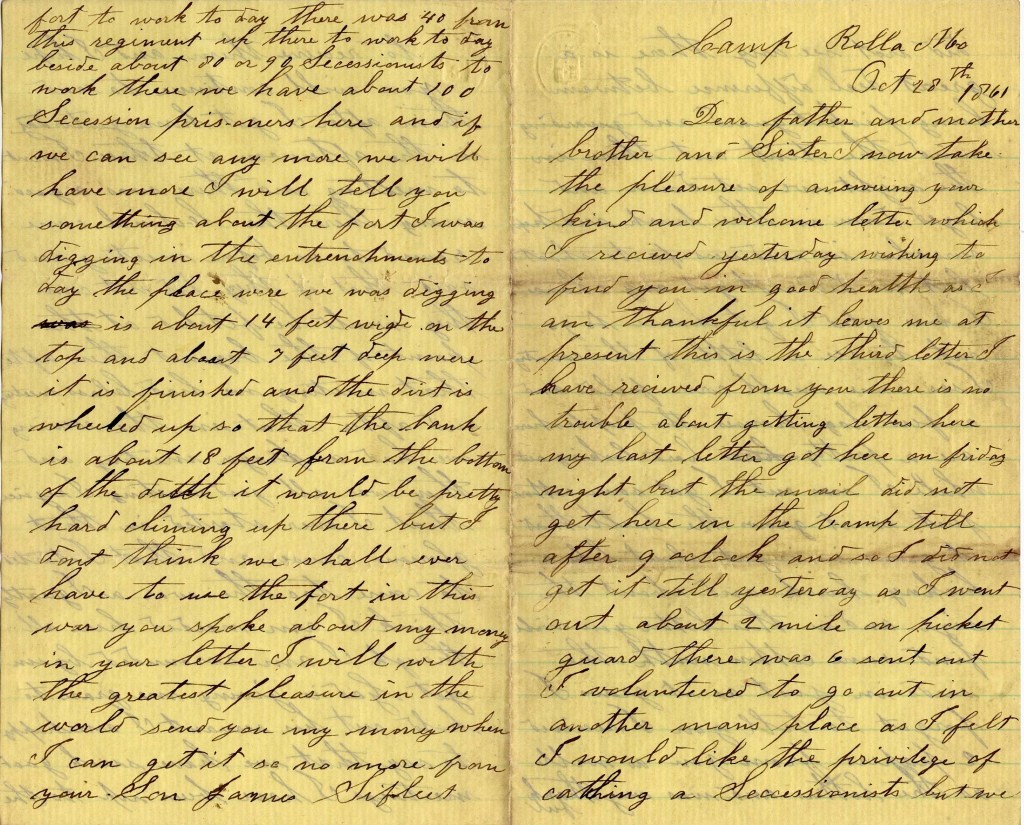 Camp Rolla Mo
Oct 28th 1861
Dear father and mother
brother and Sister I now take
the pleasure of answering your
kind and welcome letter which
I recieved yesterday wishing to
find you in good health as I
am thankful it leaves me at
present this is the third letter I
have recieved from you there is no
trouble about getting letters here
my last letter got here on friday
night but the mail did not
get here in the Camp till
after 9 oclock and so I did not
get it till yesterday as I went
out about 2 mile on picket
guard there was 6 sent out
I volunteered to go out in
another mans place as I felt
I would like the privilege of
cathing a Seccessionists but we
fort to work to day there was 40 from
this regiment up there to work to day
beside about 80 or 90 Secessionists to
work there we have about 100
Secession prisoners here and if
we can see any more we will
have more I will tell you
something about the fort I was
digging in the entrenchments to
day the place were we was digging
was is about 14 feet wide on the
top and about 7 feet deep were
it is finished and the dirt is
wheeled up so that the bank
is about 18 feet from the bottom
of the ditch it would be pretty
hard climing up there but I
dont think we shall ever
have to use the fort in this
war you spoke about my money
in your letter I will with
the greatest pleasure in the
world send you my money when
I can get it so no more from
your Son James Sifleet